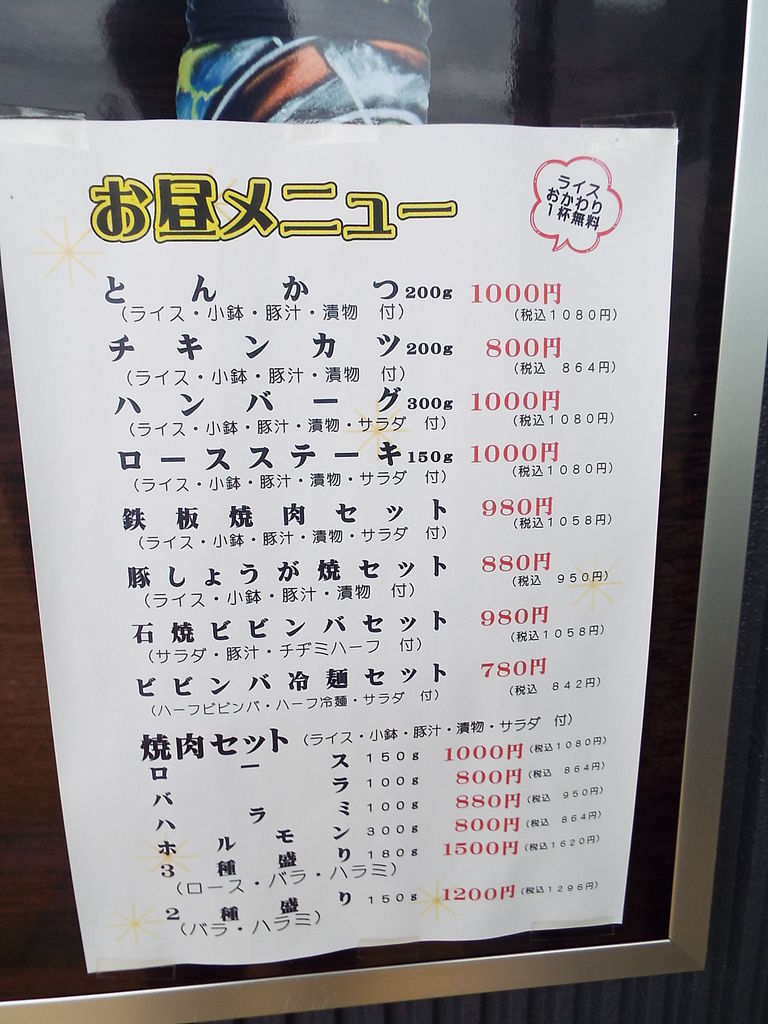 お昼メニュー
ライス
おかわり
1杯無料
とんかつ200g 1000円
(ライス・小鉢・豚汁・漬物 付) (税込1080円)
チキンカツ200g 800円
(ライス・小鉢・豚汁・漬物 付) (税込 864円)
ハンバーグ300g 1000円
(ライス・小鉢・豚汁・漬物・サラダ 付) (税込1080円)
ロースステーキ150g 1000円
(ライス・小鉢・豚汁・漬物・サラダ 付) (税込1080円)
鉄板焼肉セット 980円
(ライス・小鉢・豚汁・漬物・サラダ 付) (税込1058円)
豚しょうが焼セット 880円
(ライス・小鉢・豚汁・漬物 付) (税込 950円)
石焼ビビンバセット 980円
(サラダ・豚汁・チヂミハーフ 付) (税込1058円)
ビビンバ冷麺セット 780円
(ハーフビビンバ・ハーフ冷麺・サラダ 付) (税込 842円)
焼肉セット (ライス・小鉢・豚汁・漬物・サラダ 付)
ロース 150g 1000円 (税込1080円)
バラ 100g 800円 (税込 864円)
ハラミ 100g 880円 (税込 950円)
ホルモン 300g 800円 (税込 864円)
3種盛り 180g 1500円 (税込1620円)
(ロース・バラ・ハラミ)
2種盛り 150g 1200円 (税込1296円)
(バラ・ハラミ)